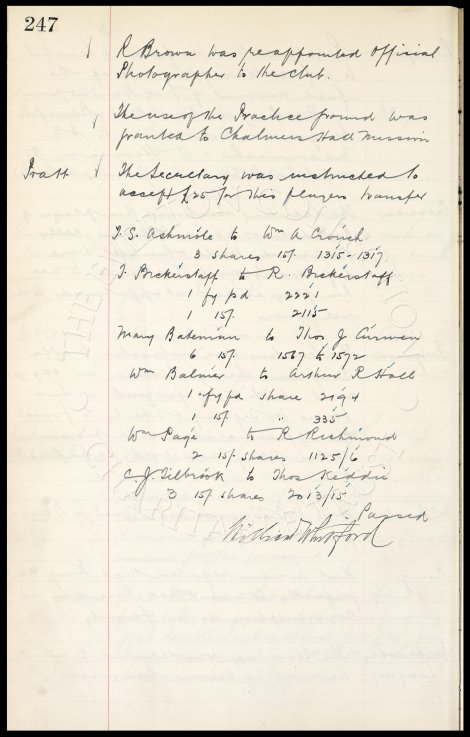 247
R Brown was reappointed Official
Photographer to the club.
The use of the Practice ground was
granted to Chalmers Hall Mission
Pratt The Secretary was instructed to
accept £25 for this players transfer
T. S. Ashmole to Wm A Crouch
3 shares 15/. 1315-1317
T. Bickerstaff to R. Bickerstaff
1 fy pd 2221
1 15/. 2115
Mary Bateman to Thos J Curwen
6 15/. 1567 to 1572
Wm Balmer to Arthur R Hall
1 fy pd share 2194
1 15/. " 335
Wm Page to R Richmond
2 15/. shares 1125/6
C. J. Tilbrook to Thos Keddie
3 15/. shares 2013/15
Passed
William Whitford